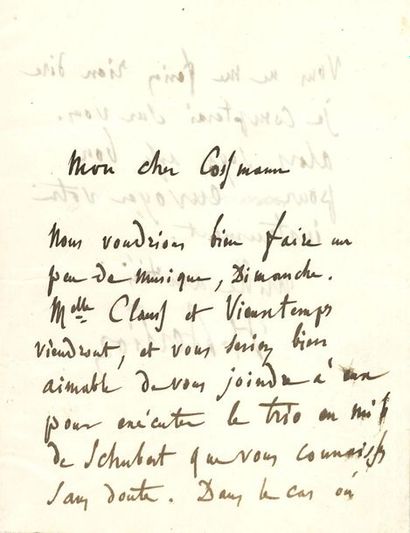 Mon cher Cossmann
Nous voudrions bien faire un
peu de musique, Dimanche.
Melle Clauss et Vieuxtemps
viendront, et vous seriez bien
aimable de vous joindre à eux
pour exécuter le trio en mi b
de Schubert que vous connaissez
sans doute. Dans le cas où